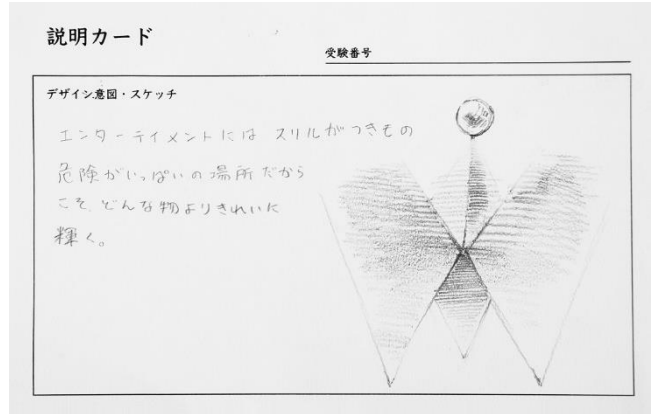 説明カード
受験番号
デザイン意図・スケッチ
エンターテイメントには スリルがつきもの
危険がいっぱいの場所だから
こそ、どんな物よりきれいに
輝く。